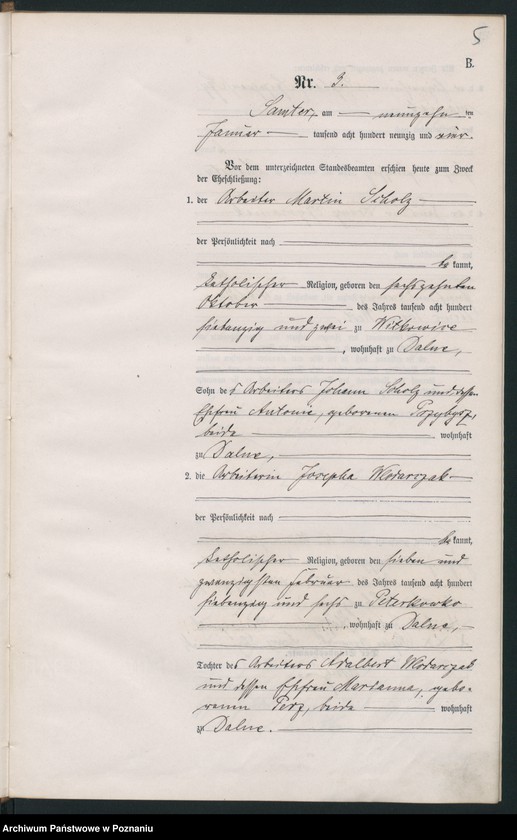 5
B.
Nr. 3.
Samter, am neunzehn ten
Januar tausend acht hundert neunzig und vier.
Vor dem unterzeichneten Standesbeamten erschien heute zum Zweck
der Eheschließung:
1. der Arbeiter Martin Scholz
der Persönlichkeit nach
be kannt,
katholischer Religion, geboren den sechszehnten
Oktober des Jahres tausend acht hundert
siebenzig und zwei zu Witkowice
, wohnhaft zu Dalne,
Sohn des Arbeiters Johann Scholz und dessen
Ehefrau Antonie, geborenen
beide wohnhaft
zu Dalne,
2. die Arbeiterin Josepha Wlodarczak
der Persönlichkeit nach
be kannt,
katholischer Religion, geboren den sieben und
zwanzigsten Februar des Jahres tausend acht hundert
siebenzig und sechs zu Peterkowko
, wohnhaft zu Dalne,
Tochter des Arbeiters Adalbert Wlodarczak
und dessen Ehefrau Marianna, gebo-
renen beide wohnhaft
zu Dalne.
Archiwum Państwowe w Poznaniu